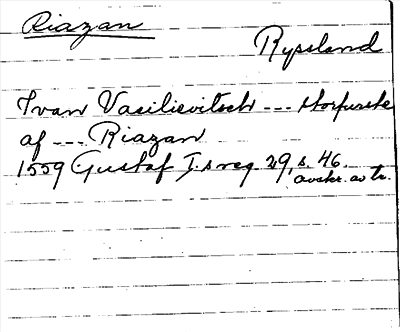 Riazan
Ryssland
Ivan Vasilievitsch --- storfurste
af --- Riazan
1559 Gustaf I.s reg. 29, s. 46.
avskr. av tr.